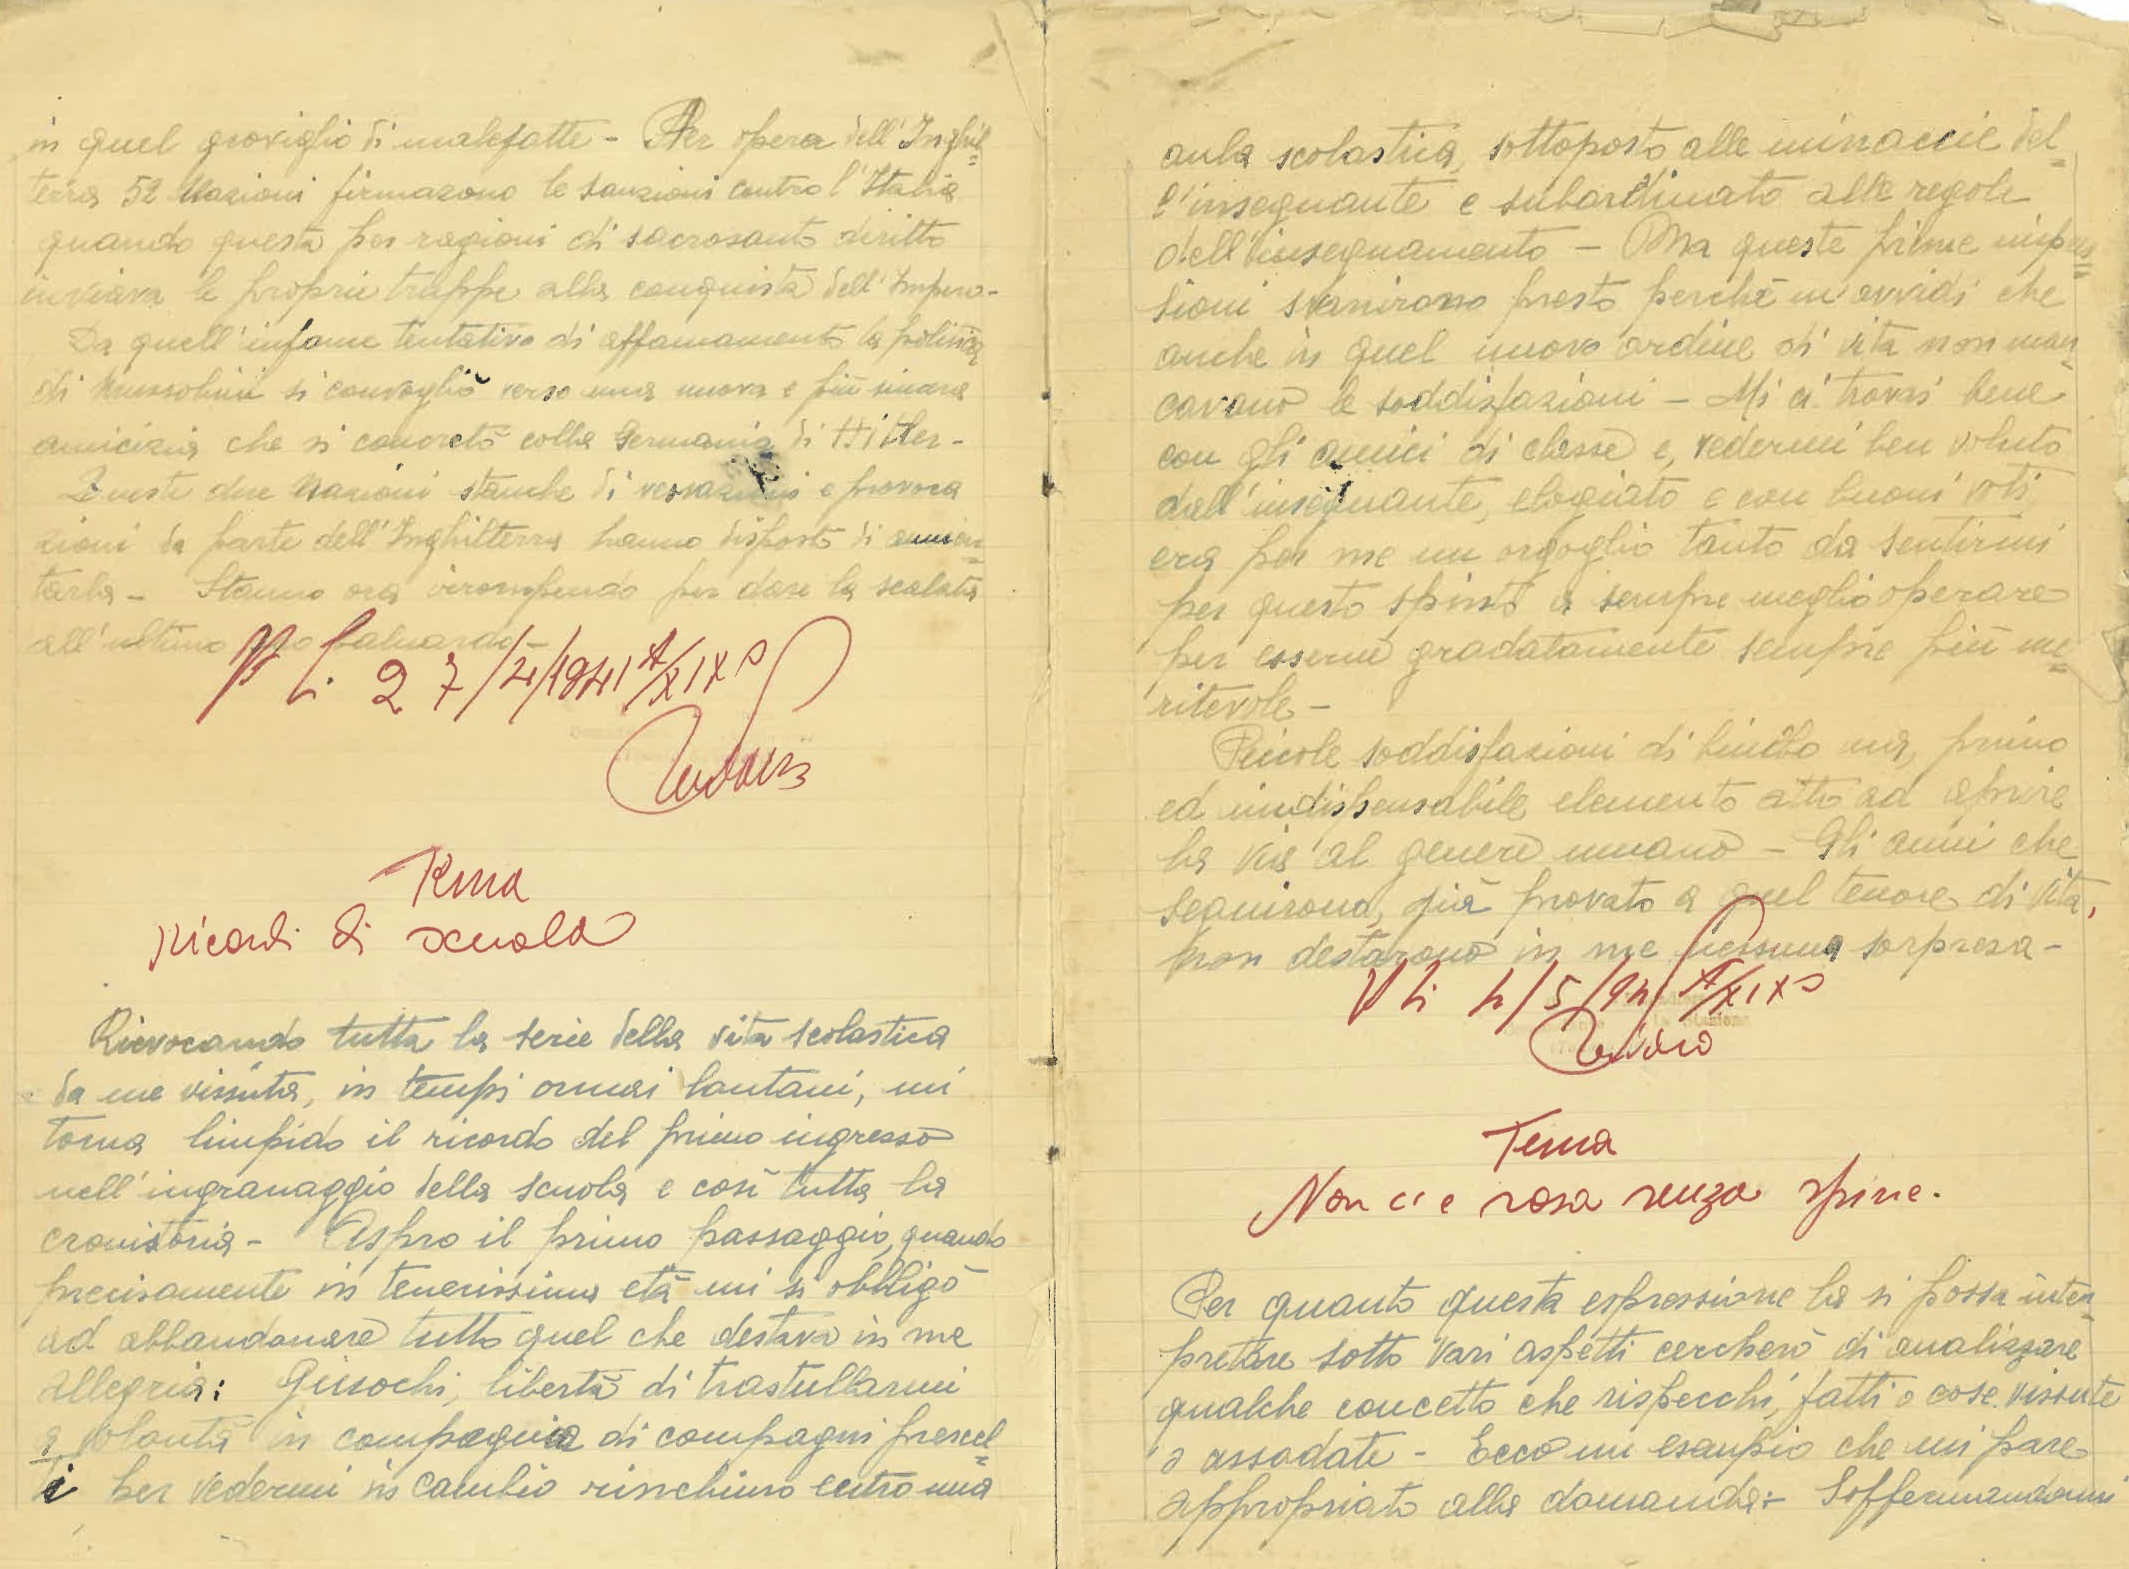 in quel groviglio di malefatte - Per opera dell'Inghil=
terra 52 Nazioni firmarono le sanzioni contro l'Italia
quando questa per ragioni di sacrosanto diritto
inviava le proprie truppe alla conquista dell'Impero-
Da quell'infame tentativo di affamamento la politica
di Mussolini si convogliò verso una nuova e più sincera
amicizia che si concretò colla Germania di Hitler-
Queste due Nazioni stanche di vessazioni e provoca
zioni da parte dell'Inghilterra hanno disposto di annien=
tarla - Stanno ora irrompendo per dare la scalata
all'ultimo baluardo-
27/4/1941 A/XIXo
Tema
Ricordi di scuola
Rievocando tutta la serie della vita scolastica
da me vissuta, in tempi ormai lontani, mi
torna limpido il ricordo del primo ingresso
nell'ingranaggio della scuola e così tutta la
cronistoria - Aspro il primo passaggio, quando
precisamente in tenerissima età mi si obbligò
ad abbandonare tutto quel che destava in me
allegria: Giuochi, libertà di trastullarmi
a volontà in compagnia di compagni prescel=
ti per vedermi in cambio rinchiuso entro una
aula scolastica, sottoposto alle minaccie del=
l'insegnante e subordinato alle regole
dell'insegnamento - Ma queste prime impres=
sioni svanirono presto perchè m'avvidi che
anche in quel nuovo ordine di vita non man=
cavano le soddisfazioni - Mi ci trovai bene
con gli amici di classe e, vedermi ben voluto
dall'insegnante, elogiato e con buoni voti
era per me un orgoglio tanto da sentirmi
per questo spinto a sempre meglio operare
per esserne gradatamente sempre più me=
ritevole-
Piccole soddisfazioni di bimbo ma, primo
ed indispensabile elemento atto ad aprire
la via al genere umano - Gli anni che
seguirono, già provato a quel tenore di vita,
non destarono in me nessuna sorpresa-
4/5/941 A/XIXo
Tema
Non c'è rosa senza spine.
Per quanto questa espressione la si possa inter=
pretare sotto vari aspetti cercherò di analizzare
qualche concetto che rispecchi, fatti o cose vissute
o assodate - Ecco un esempio che mi pare
appropriato alla domanda:- Soffermandomi